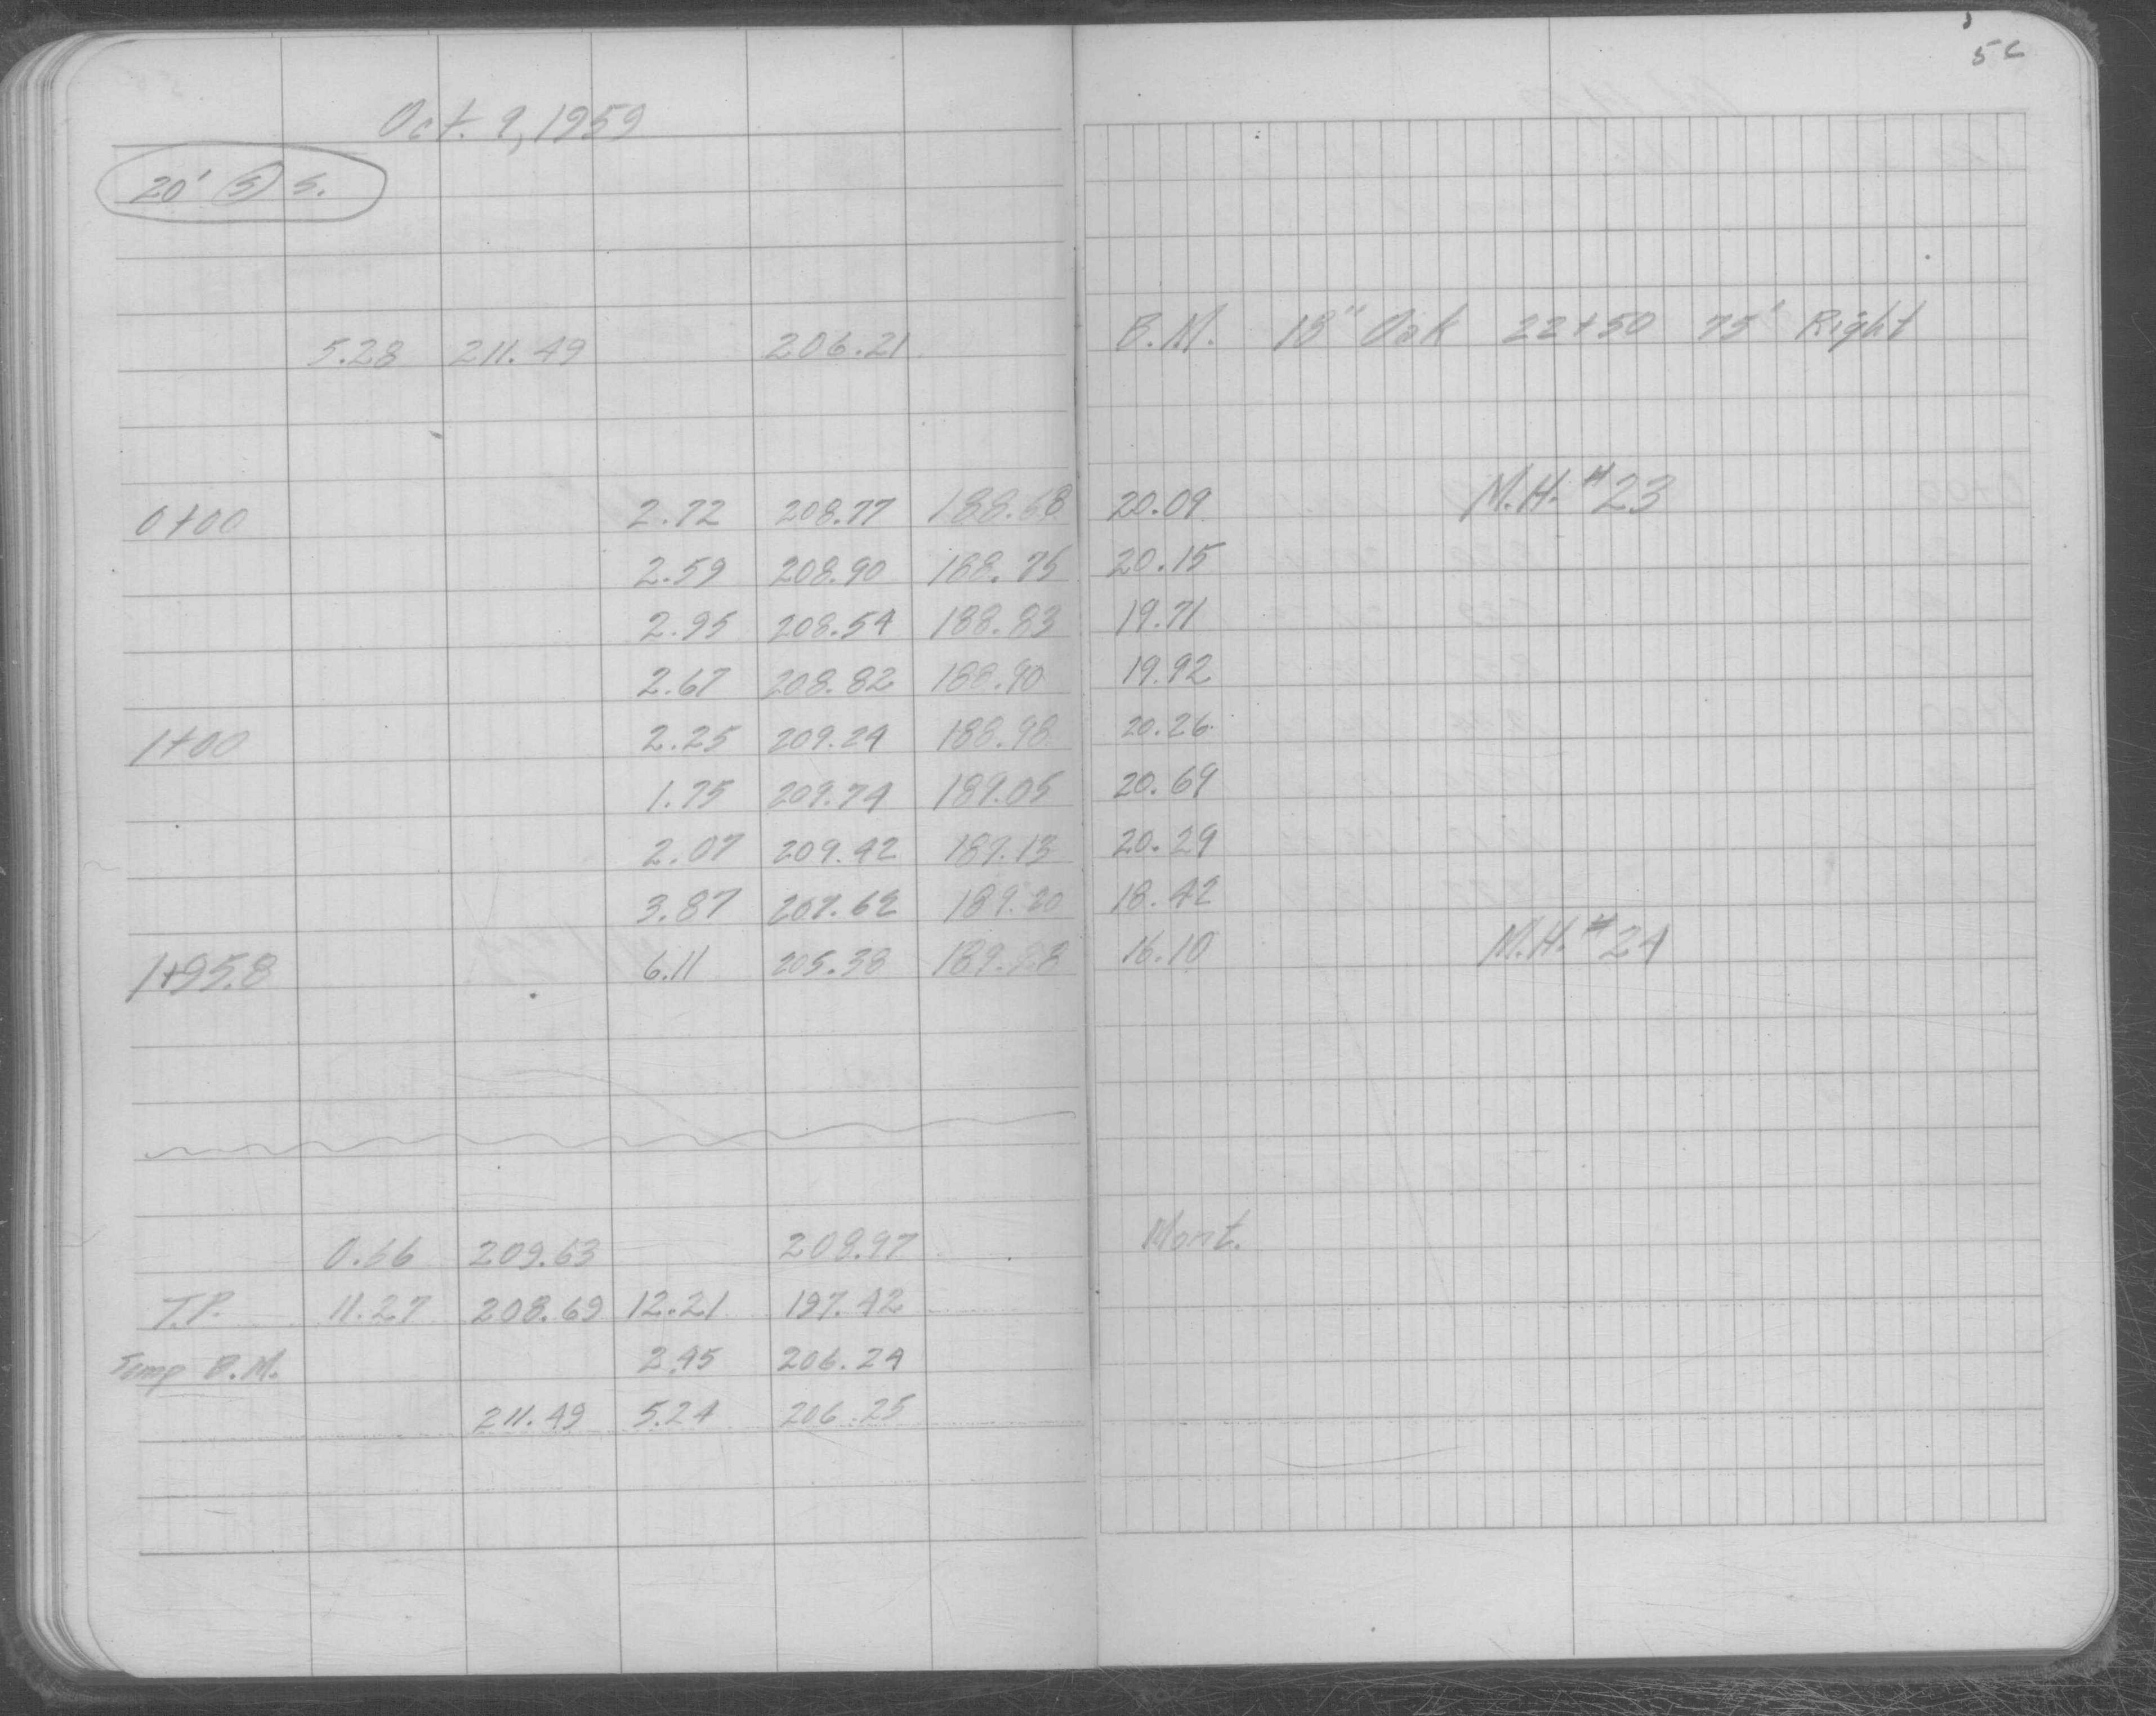 Oct. 9, 1959
20' (S) S.
5.28 211.49 206.21 B.M. 18" Oak 22+50 75' Right
0+00 2.72 208.77 188.68 20.09 M.H. #23
2.59 208.90 188.75 20.15
2.95 208.54 188.83 19.71
2.67 208.82 188.90 19.92
1+00 2.25 209.24 188.98 20.26
1.75 209.74 189.05 20.69
2.07 209.42 189.13 20.29
3.87 207.62 189.20 18.42
1+95.8 6.11 205.38 189.28 16.10 M.H. #24
0.66 209.63 208.97 Mont.
T.P. 11.27 208.69 12.21 197.42
Temp B.M. 2.45 206.24
211.49 5.24 206.25